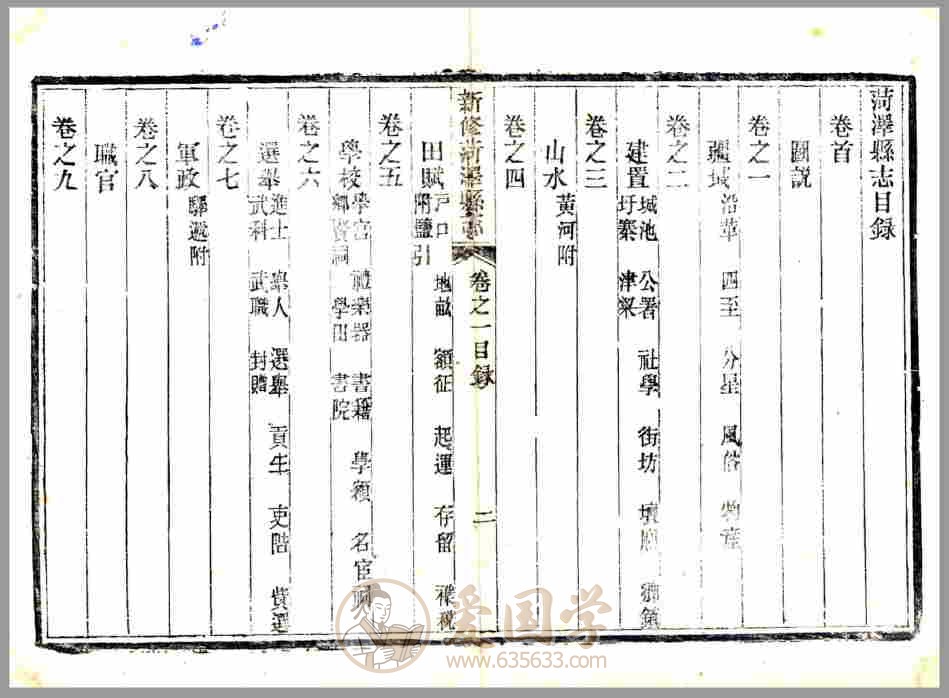 菏澤縣志目録
卷首
圖說
卷之一
疆域 沿革 四至 分星 風俗 物産
卷之二
建置 城池 公署 社學 街坊 壇廟 鄉鎮
圩寨 津梁
卷之三
山水 黃河附
卷之四
新修菏澤縣志 卷之一目録 二
田賦 戶口 地畝 額征 起運 存留 襍稅
附鹽引
卷之五
學校 學宮 禮樂器 書籍 學額 名宦
鄉賢祠 學田 書院
卷之六
選舉 進士 舉人 選舉 貢生 吏階 貲選
武科 武職 封贈
卷之七
軍政 驛遞附
卷之八
職官
卷之九
爱国学
www.635633.com